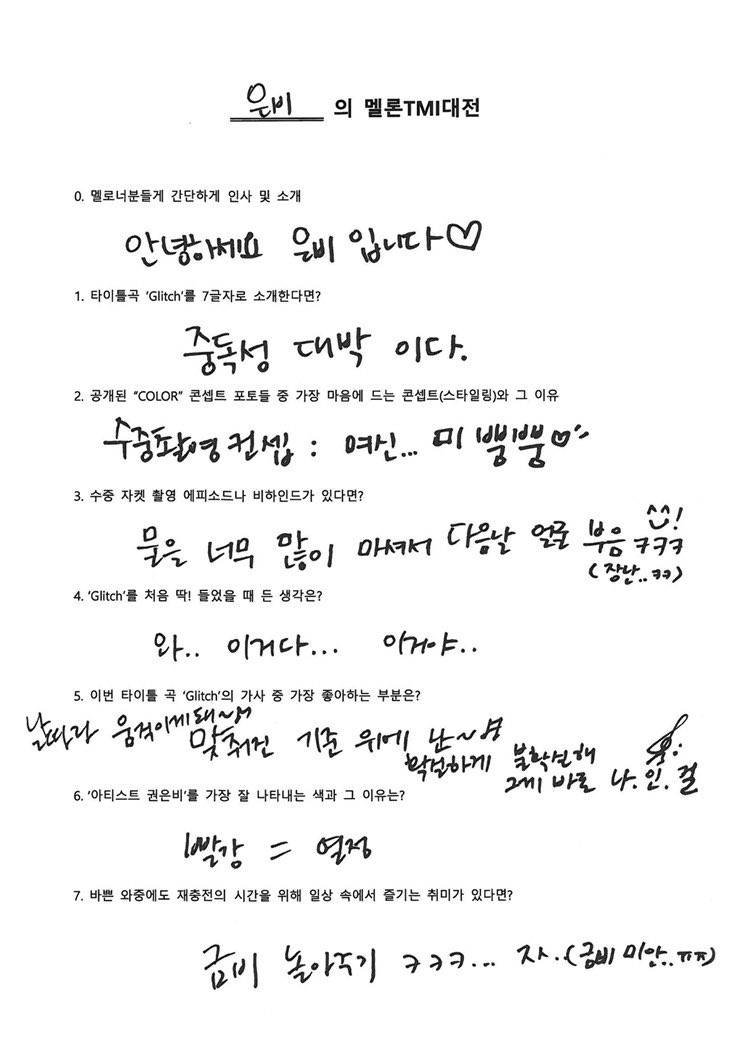 은비 의 멜론TMI대전
0. 멜로너분들게 간단하게 인사 및 소개
안녕하세요 은비 입니다♡
1. 타이틀곡 ‘Glitch’를 7글자로 소개한다면?
중독성 대박 이다.
2. 공개된 “COLOR” 콘셉트 포토들 중 가장 마음에 드는 콘셉트(스타일링)와 그 이유
수중촬영 컨셉 : 여신... 미 뿜뿜♡
3. 수중 자켓 촬영 에피소드나 비하인드가 있다면?
물을 너무 많이 마셔서 다음날 얼굴 부음 ㅋㅋㅋ ^^!
(장난..ㅋㅋ)
4. ‘Glitch’를 처음 딱! 들었을 때 든 생각은?
와.. 이거다... 이거야..
5. 이번 타이틀 곡 ‘Glitch’의 가사 중 가장 좋아하는 부분은?
날따라 움직이게 돼~
맞춰진 기준 위에 난~
확실하게 불확실해
그게 바로 나.인.걸
6. ‘아티스트 권은비’를 가장 잘 나타내는 색과 그 이유는?
빨강 = 열정
7. 바쁜 와중에도 재충전의 시간을 위해 일상 속에서 즐기는 취미가 있다면?
금비 놀아주기 ㅋㅋㅋ... 자.(금비 미안..ㅠㅠ)